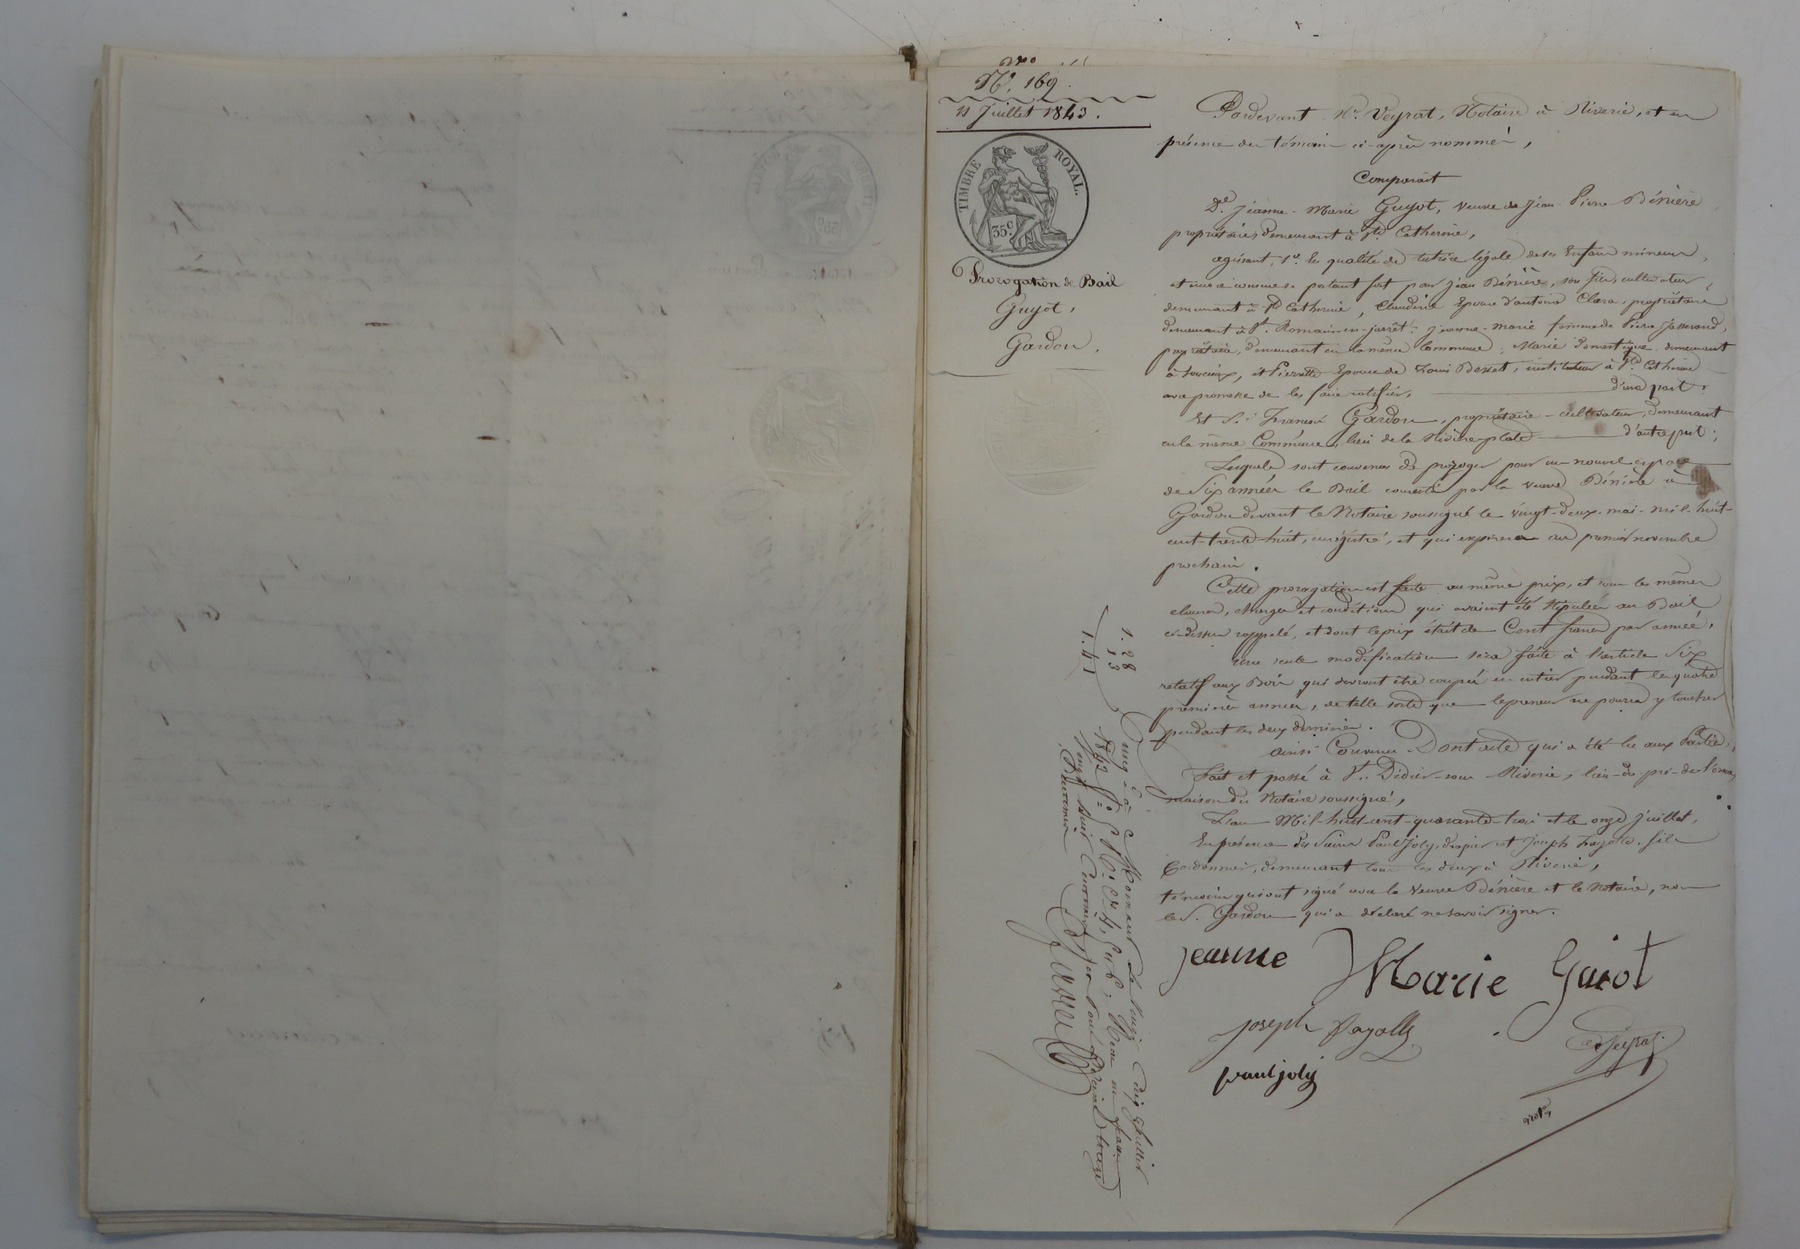 N.° 169.
11 Juillet 1843.
TIMBRE ROYAL.
35 c.
Prorogation de Bail
Guyot,
Gardon,
Pardevant M.e Veyrat, Notaire à Riverie, et en
présence des témoins ci-après nommés,
Comparait
D.e Jeanne-Marie Guyot, veuve de Jean Pierre Bénière
propriétaire, demeurant à S.te Catherine,
agissant, 1.° en qualité de tutrice légale de ses Enfans mineurs,
et comme se portant fort pour Jean Bénière, son fils, cultivateur
demeurant à S.te Catherine, Claudine Epouse d'antoine Clara, propriétaire
demeurant à S.t Romain-en-jarrêt; Jeanne-marie femme de Pierre Jasserand,
propriétaire, demeurant en la même Commune; Marie Domestique demeurant
à Soucieux, et Pierrette Epouse de Louis instituteur à S.te Catherine
avec promesse de les faire ratifier, d'une part;
Et S.r François Gardon, propriétaire-cultivateur, demeurant
en la même Commune, lieu de la Rivière-plate d'autre part;
Lesquels sont convenus de proroger pour un nouvel espace
de Six années le Bail consenti par la veuve Bénière à
Gardon devant le Notaire soussigné le vingt-deux mai mil-huit-
cent-trente-huit, enregistré, et qui expirera au premier novembre
prochain.
Cette prorogation est faite au même prix, et sous les mêmes
clauses, charges et conditions qui avaient été stipulées au Bail
ci-dessus rappelé, et dont le prix était de Cent francs par année,
Une seule modification sera faite à l'article Six
relatif aux Bois qui devront être coupés en entier pendant les quatre
premières années, de telle sorte que le preneur ne pourra y toucher
pendant les deux dernières.
ainsi Convenu Dont acte qui a été lu aux Parties,
Fait et passé à S.t Didier-sous-Riverie, lieu du pré-de l'orme,
maison du Notaire soussigné,
L'an Mil-huit-cent-quarante-trois et le onze Juillet,
En présence des Sieurs Paul Joly, drapier et Joseph Fayolle, fils
Cordonnier, demeurant tous les deux à Riverie,
témoins qui ont signé avec la veuve Bénière et le Notaire, non
le S. Gardon qui a déclaré ne savoir signer.
jeanne Marie Guiot
joseph Fayolle
Veyrat
paul joly
not.re
1. 28
13
1. 41
Enreg. à Mornant le Juillet
1843 f.° C.
vingt huit Centimes